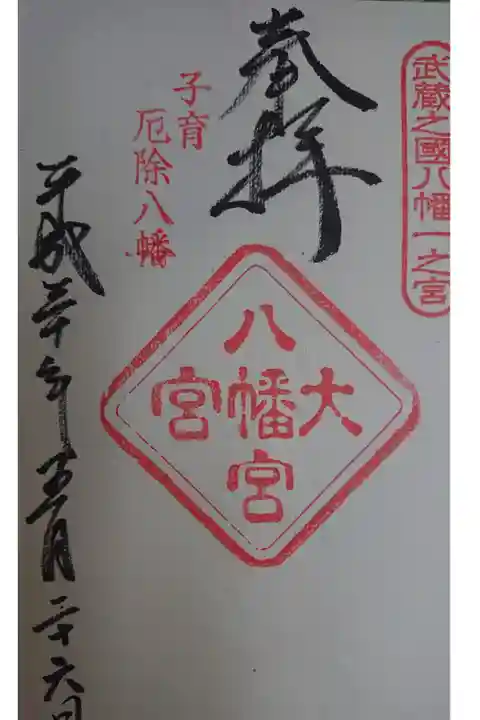 武蔵之國八幡一之宮
奉拝
子育
厄除八幡
大
八幡宮
宮
平成三十年五月二十六日